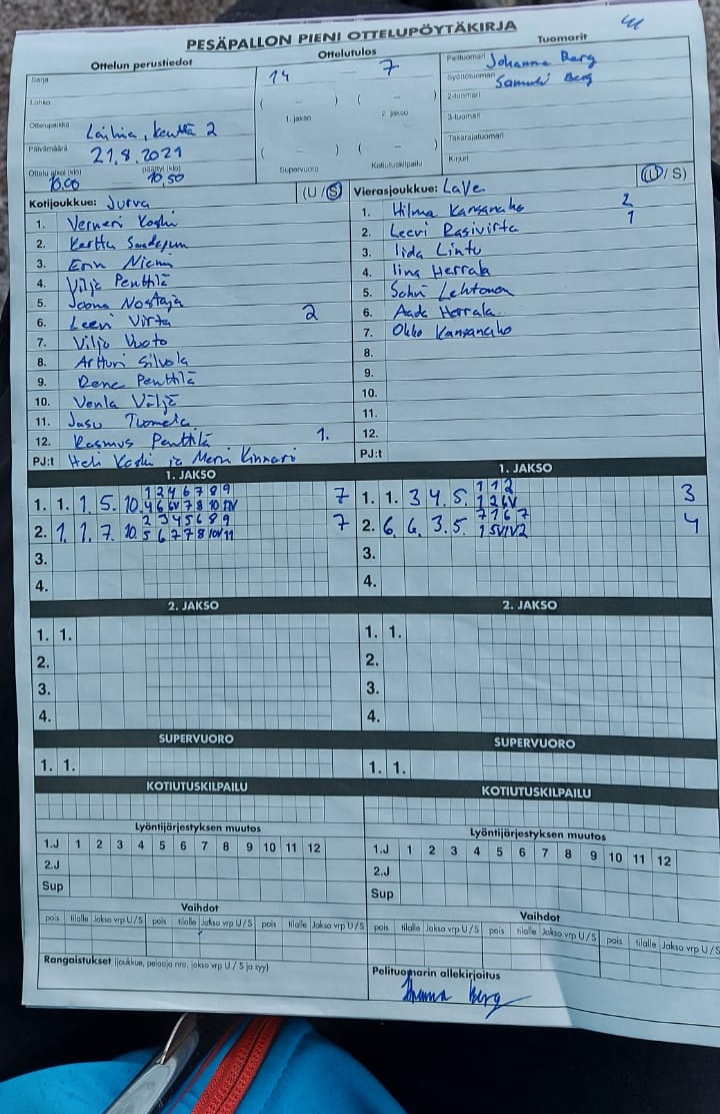 PESÄPALLON PIENI OTTELUPÖYTÄKIRJA
Ottelun perustiedot
Sarja
Lohko
Ottelupaikka Laihia, kenttä 2
Päivämäärä 21.8.2021
Ottelu alkoi (klo) 10.00 päättyi (klo) 10,50
Ottelutulos
14 - 7
( - ) ( - )
1. jakso 2. jakso
( - ) -
Supervuoro Kotiutuskilpailu
Tuomarit
Pelituomari Johanna Berg
Syöttötuomari Samuli Berg
2-tuomari
3-tuomari
Takarajatuomari
Kirjuri
Kotijoukkue: Jurva (U / S)
1. Verneri Koski
2. Kerttu
3. Enni Niemi
4. Viljo Penttilä
5. Joona Nostaja
6. Leevi Virta 2
7. Viljo Vuoto
8. Artturi Silvola
9. Rene Penttilä
10. Venla Väljä
11. Jasu Tuomela
12. Rasmus Penttilä 1.
PJ:t Heli Koski ja Mervi Kinnari
Vierasjoukkue: LaVe (U / S)
1. Hilma Kansanaho 2
2. Leevi Rasivirta 1
3. Iida Lintu
4. Iina Herrala
5. Lehtonen
6. Aada Herrala
7. Okko Kansanaho
8.
9.
10.
11.
12.
PJ:t
1. JAKSO
1. 1. 1. 5. 10. 7
2. 1. 1. 7. 10. 7
3.
4.
1. JAKSO
1. 1. 3 4. 5. 1 1 2 3
1 2 6V
2. 6. 6. 3. 5. 7 1 6 7 4
3.
4.
2. JAKSO
1. 1.
2.
3.
4.
2. JAKSO
1. 1.
2.
3.
4.
SUPERVUORO
1. 1.
SUPERVUORO
1. 1.
KOTIUTUSKILPAILU
KOTIUTUSKILPAILU
Lyöntijärjestyksen muutos
1.J 1 2 3 4 5 6 7 8 9 10 11 12
2.J
Sup
Lyöntijärjestyksen muutos
1.J 1 2 3 4 5 6 7 8 9 10 11 12
2.J
Sup
Vaihdot
pois tilalle Jakso vrp U/S pois tilalle Jakso vrp U/S pois tilalle Jakso vrp U/S
Vaihdot
pois tilalle Jakso vrp U/S pois tilalle Jakso vrp U/S pois tilalle Jakso vrp U/S
Rangaistukset (joukkue, pelaaja nro, jakso vrp U / S ja syy)
Pelituomarin allekirjoitus
Johanna Berg